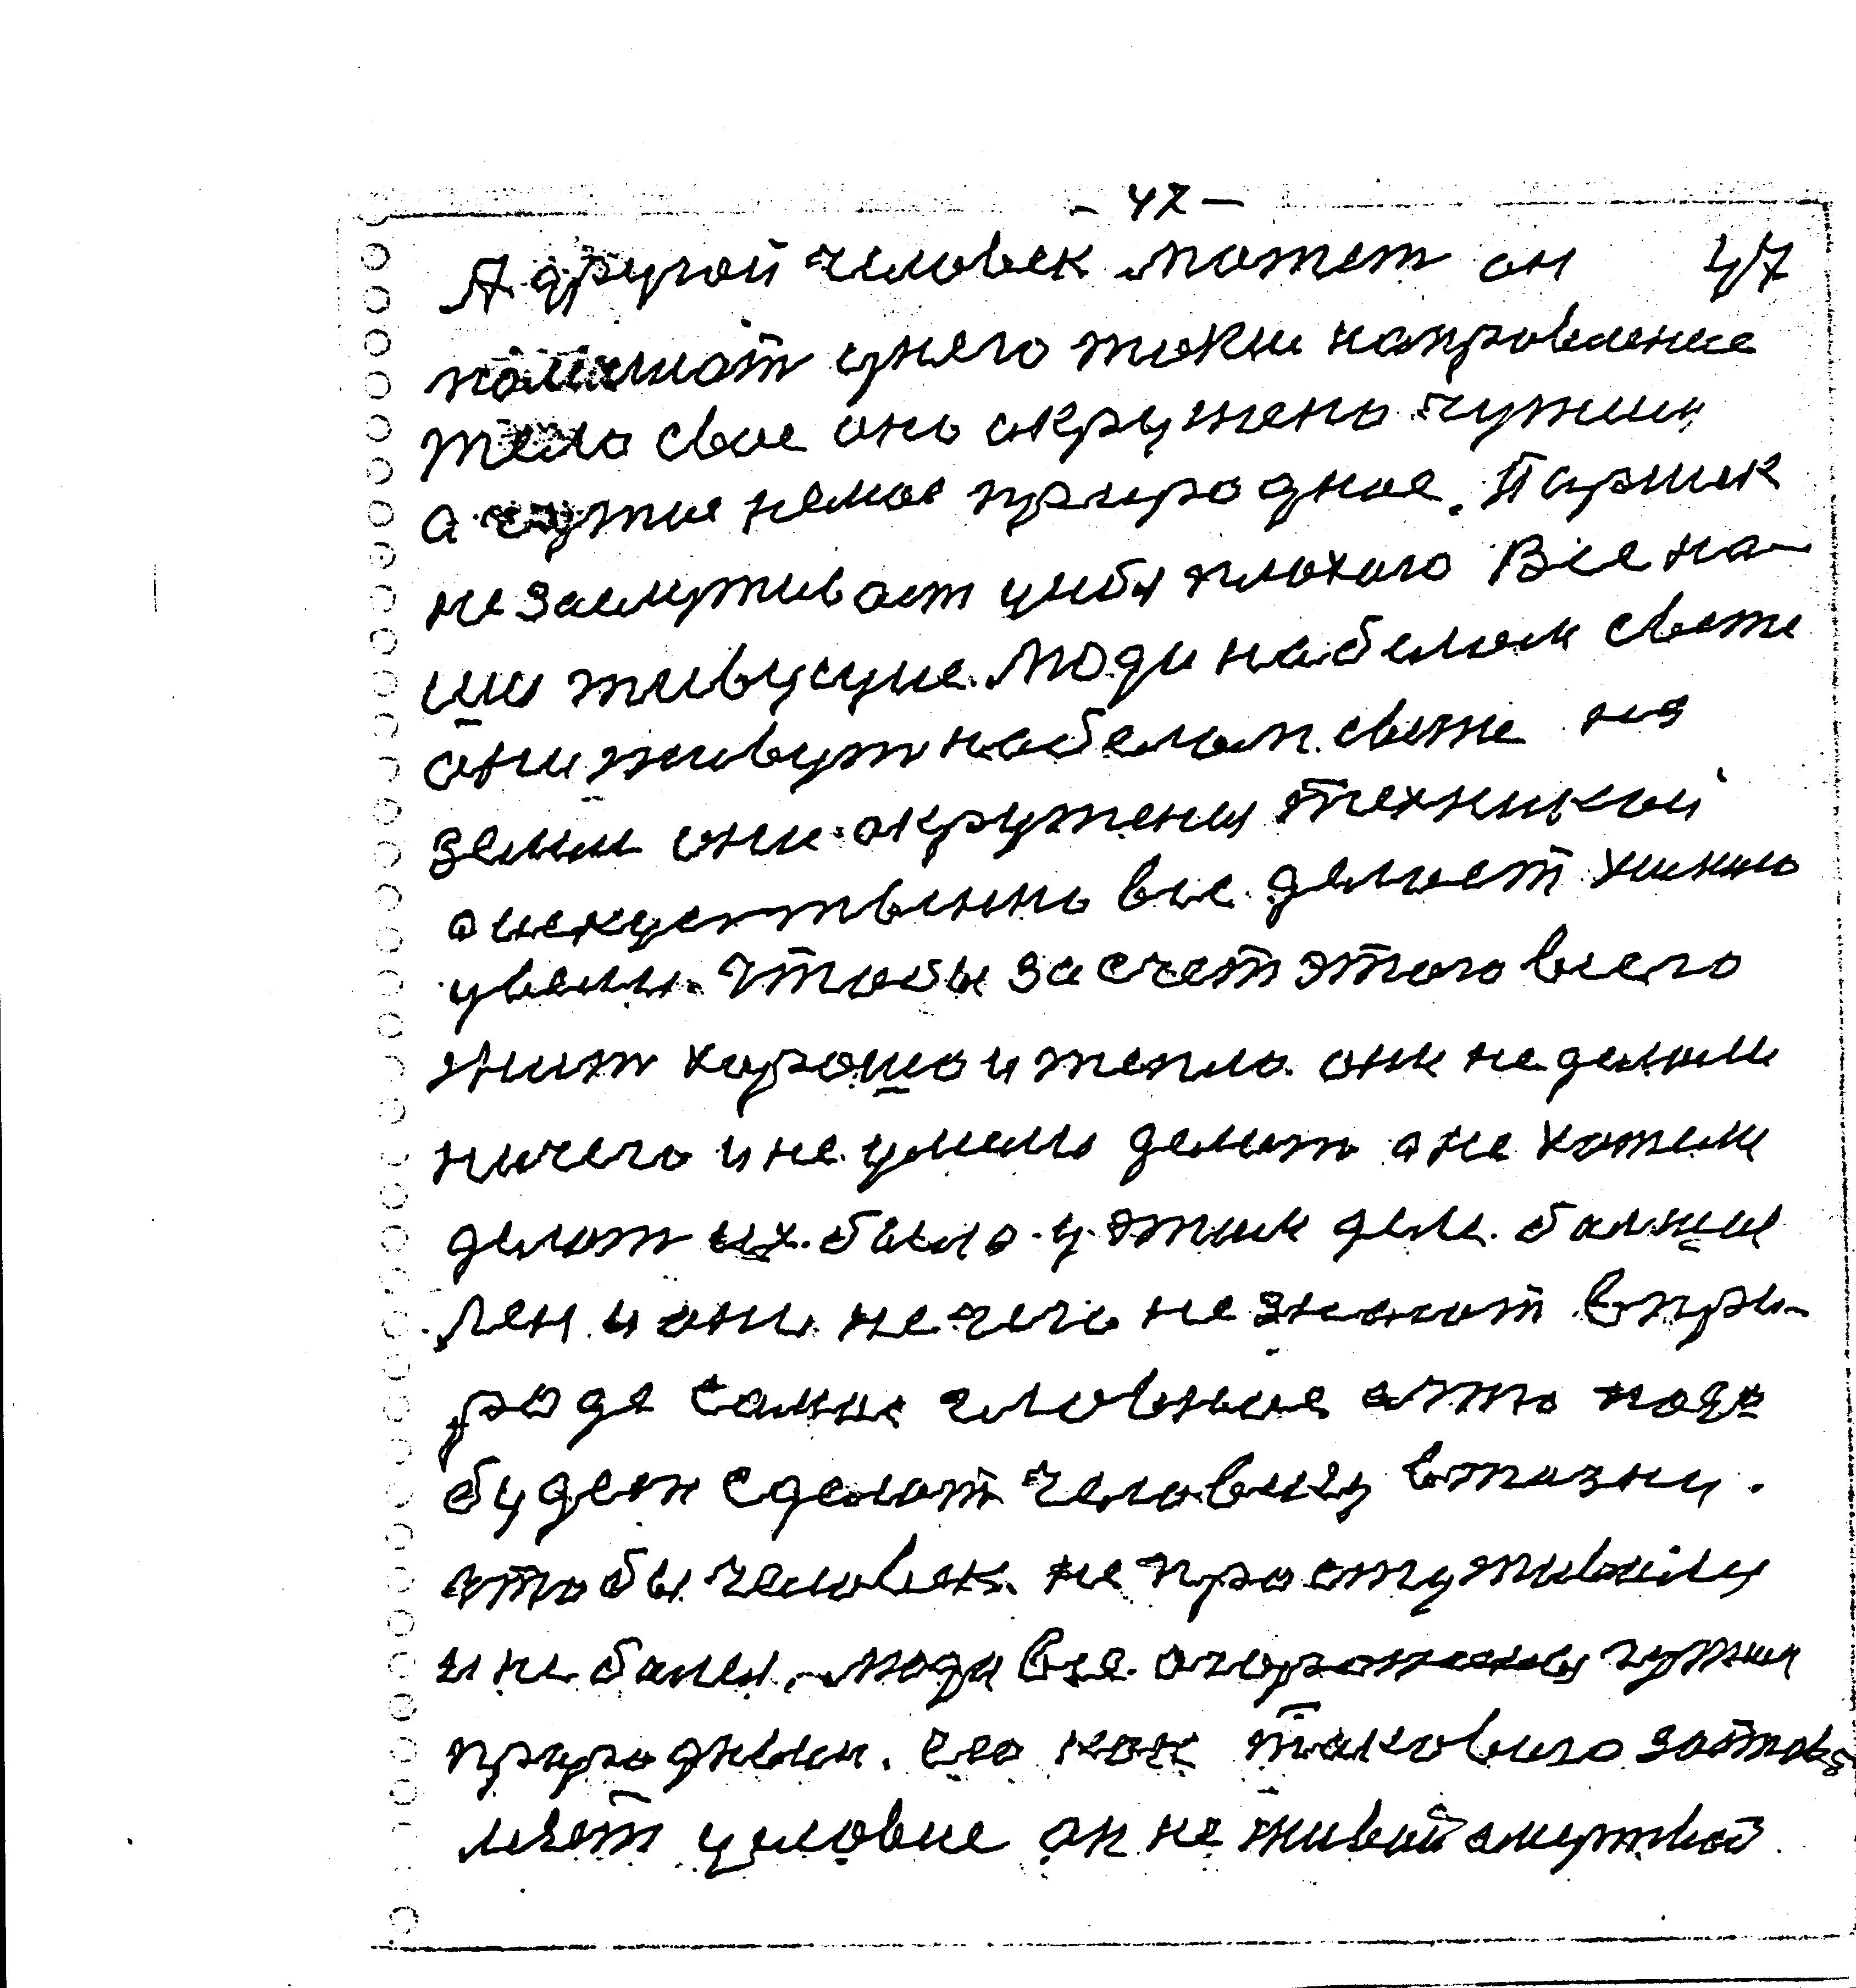 - 47 -
А другой человек может он 47
помишат у него такии направление
тело свое оно окружено чужим
а чужое немое природное. Паршек
не заслуживает у небя плохого Все на-
ши живусчие. Люди на белом свете
они живут на белом свете на
земли они окружены техникой
а искуственно все делают химию
увели. Чтобы за счет этого всего
жит хорошо и тепло. они не делали
ничего и не умели делат а не хотели
делат их было у этим деле болшие
лен и они нечего не знают в при-
роде самое главное а что надо
будет сделат человеку в жизни.
чтобы человек не простуживался
и не болел, надо все огорожены чужим
природным. его как такового заставля
ляет условие он не живой а мертвой